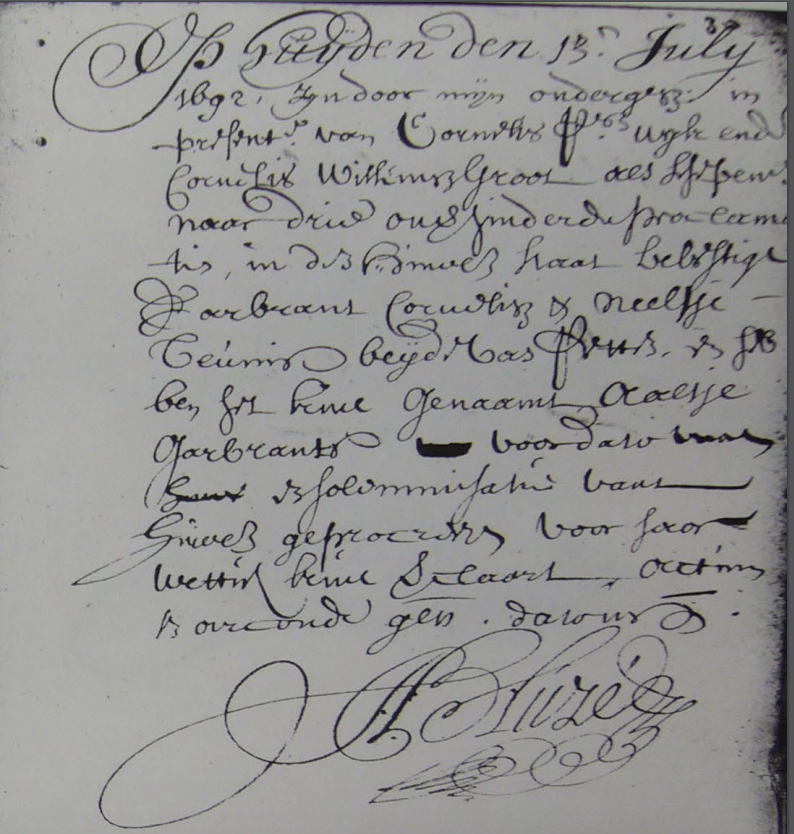 37
Op Huijden den 13.e July
1692. Zyn door mijn ondergesz: in
present.e van Cornelis P.rsz wyk ende
Cornelis Willemsz Groot als schepens
naar drie onverhinderde proclama
tis, in den huwel: staat bevestigt
Garbrant Cornelisz & Neeltje –
Teunis beyde van Petten, en heb
ben het kint genaamt Aaltje
Garbrants voor dato
solemnisatie vant
Huwel: geprocreeert voor haar
wettig kint verclaart, Actum
t'oirconde get: datum